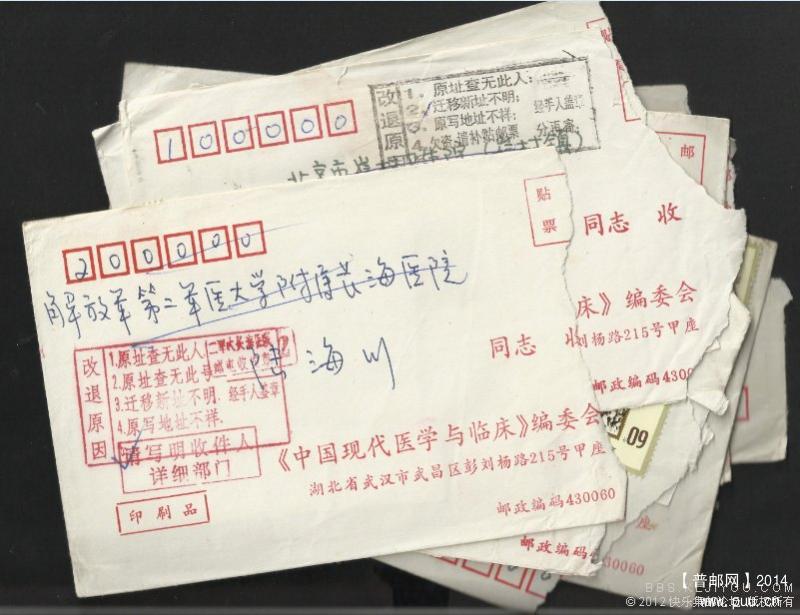 100000
改退原
1. 原址查无此人;
2. 迁移新址不明;
3. 原写地址不祥;
4. 欠资,请补贴邮票
经手人盖章
分再寄;
北京市
贴
邮
同志 收
床》编委会
刘杨路215号甲座
邮政编码430
200000
贴票
解放军第二军医大学附属长海医院
陆海川
同志 收
改退原因
1.原址查无此人
2.原址查无此号
3.迁移新址不明.
经手人盖章
4.原写地址不祥.
请写明收件人
详细部门
《中国现代医学与临床》编委会
湖北省武汉市武昌区彭刘杨路215号甲座
邮政编码430060
印刷品
60
座
邮政编码
30060
【普邮网】2014
BBS.KEJIYOU.COM
www.puu.cn